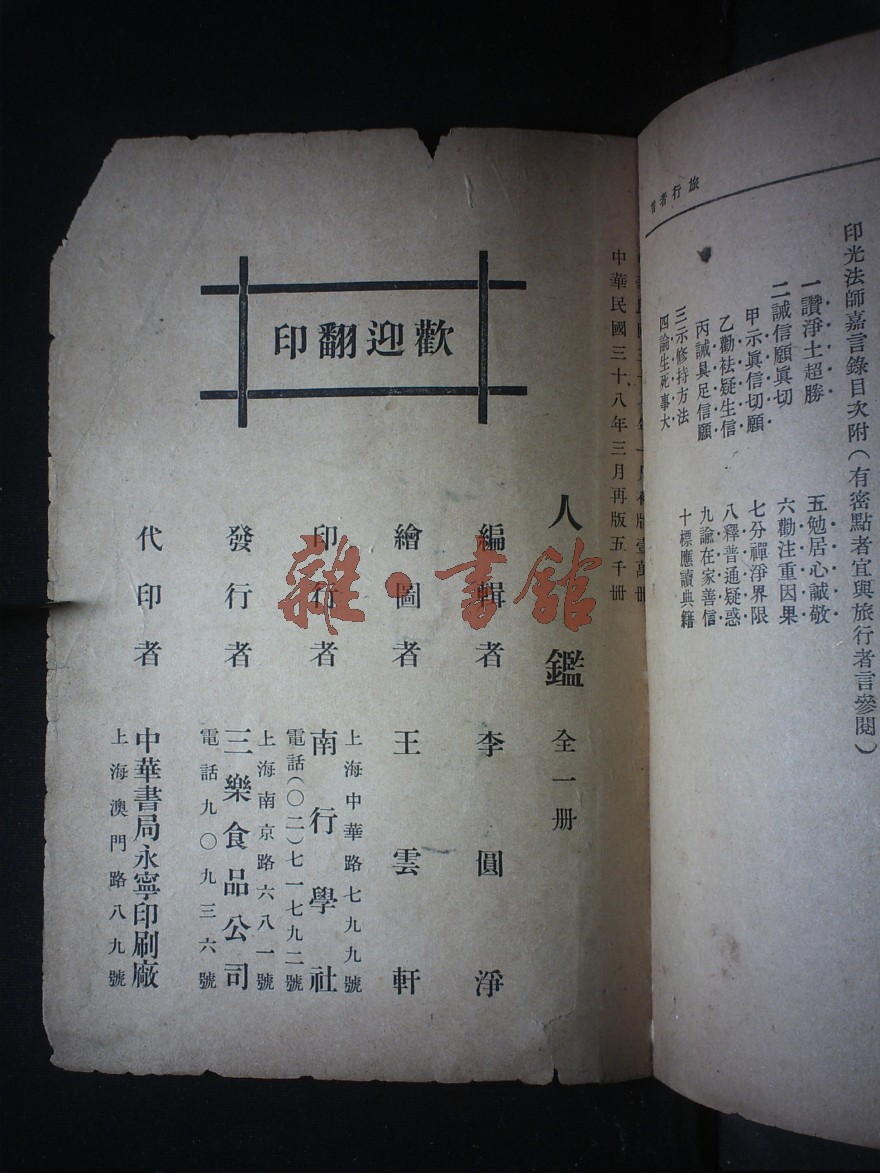 旅行者言
印光法師嘉言錄目次附（有密點者宜與旅行者言參閱）
一讚淨土超勝
二誡信願眞切
甲示眞信切願
乙勸祛疑生信
丙誡具足信願
三示修持方法
四論生死事大
五勉居心誠敬
六勸注重因果
七分禪淨界限
八釋普通疑惑
九諭在家善信
十標應讀典籍
版壹萬冊
中華民國三十八年三月再版五千冊
歡迎翻印
人鑑 全一册
編輯者 李圓淨
繪圖者 王雲軒
上海中華路七九九號
印行者 南行學社
電話(〇二)七一七九二號
上海南京路六八一號
發行者 三樂食品公司
電話九〇九三六號
代印者 中華書局永寧印刷廠
上海澳門路八九號
雜·書館